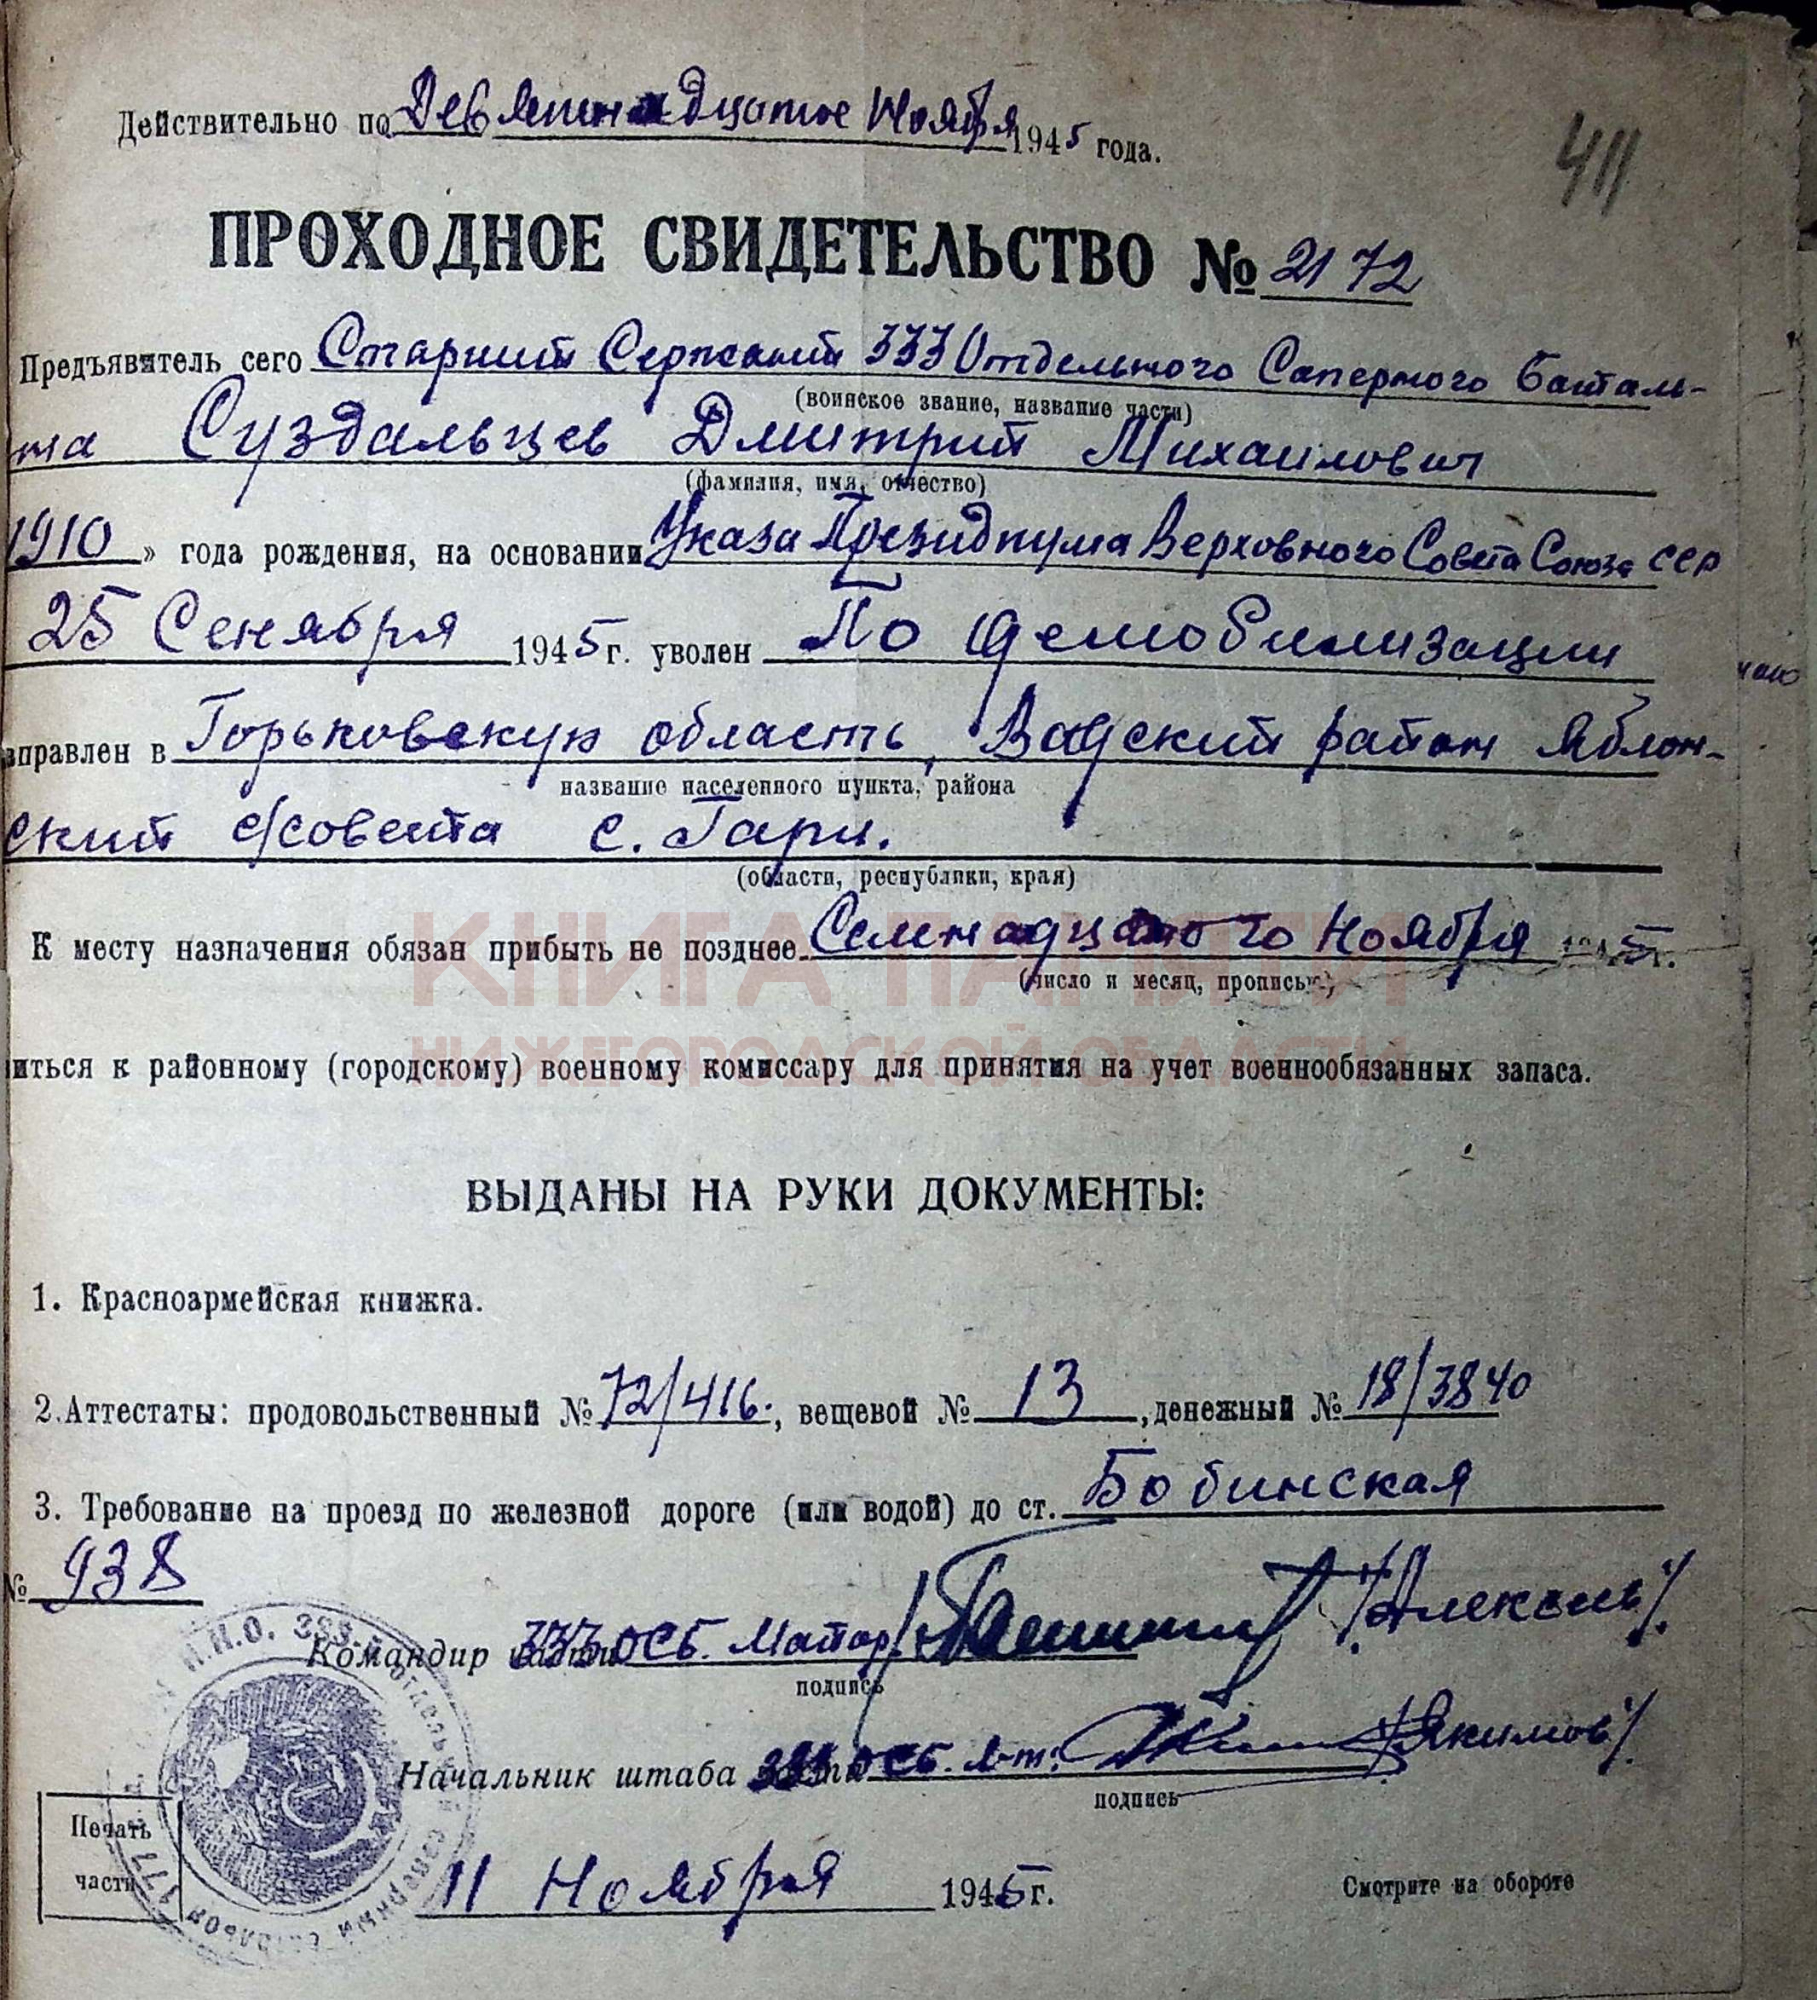 Действительно по Девятнадцатое Ноября 1945 года.
411
ПРОХОДНОЕ СВИДЕТЕЛЬСТВО № 2172
Предъявитель сего Старший Сержант 333 Отдельного Саперного Баталь-
(воинское звание, название части)
на Суздальцев Дмитрий Михаилович
(фамилия, имя, отчество)
1910 » года рождения, на основании Указа Президиума Верховного Совета Союза ССР
25 Сентября 1945 г. уволен По демобилизации
аправлен в Горьковскую область, Вадский район Яблон-
название населенного пункта, района
ский с/совета с. Гари.
(области, республики, края)
К месту назначения обязан прибыть не позднее Семнадцатого Ноября 1945 г.
(число и месяц, прописью)
КНИГА ПАМЯТИ
НИЖЕГОРОДСКОЙ ОБЛАСТИ
иться к районному (городскому) военному комиссару для принятия на учет военнообязанных запаса.
ВЫДАНЫ НА РУКИ ДОКУМЕНТЫ:
1. Красноармейская книжка.
2. Аттестаты: продовольственный № 72/416., вещевой № 13, денежный № 18/3840
3. Требование на проезд по железной дороге (или водой) до ст. Бобинская
№ 938
Командир части 333 ОСБ. Майор
подпись
Начальник штаба части 333 ОСБ. л-т. /Якимов/
подпись
Печать
части
11 Ноября 1945 г.
Смотрите на обороте